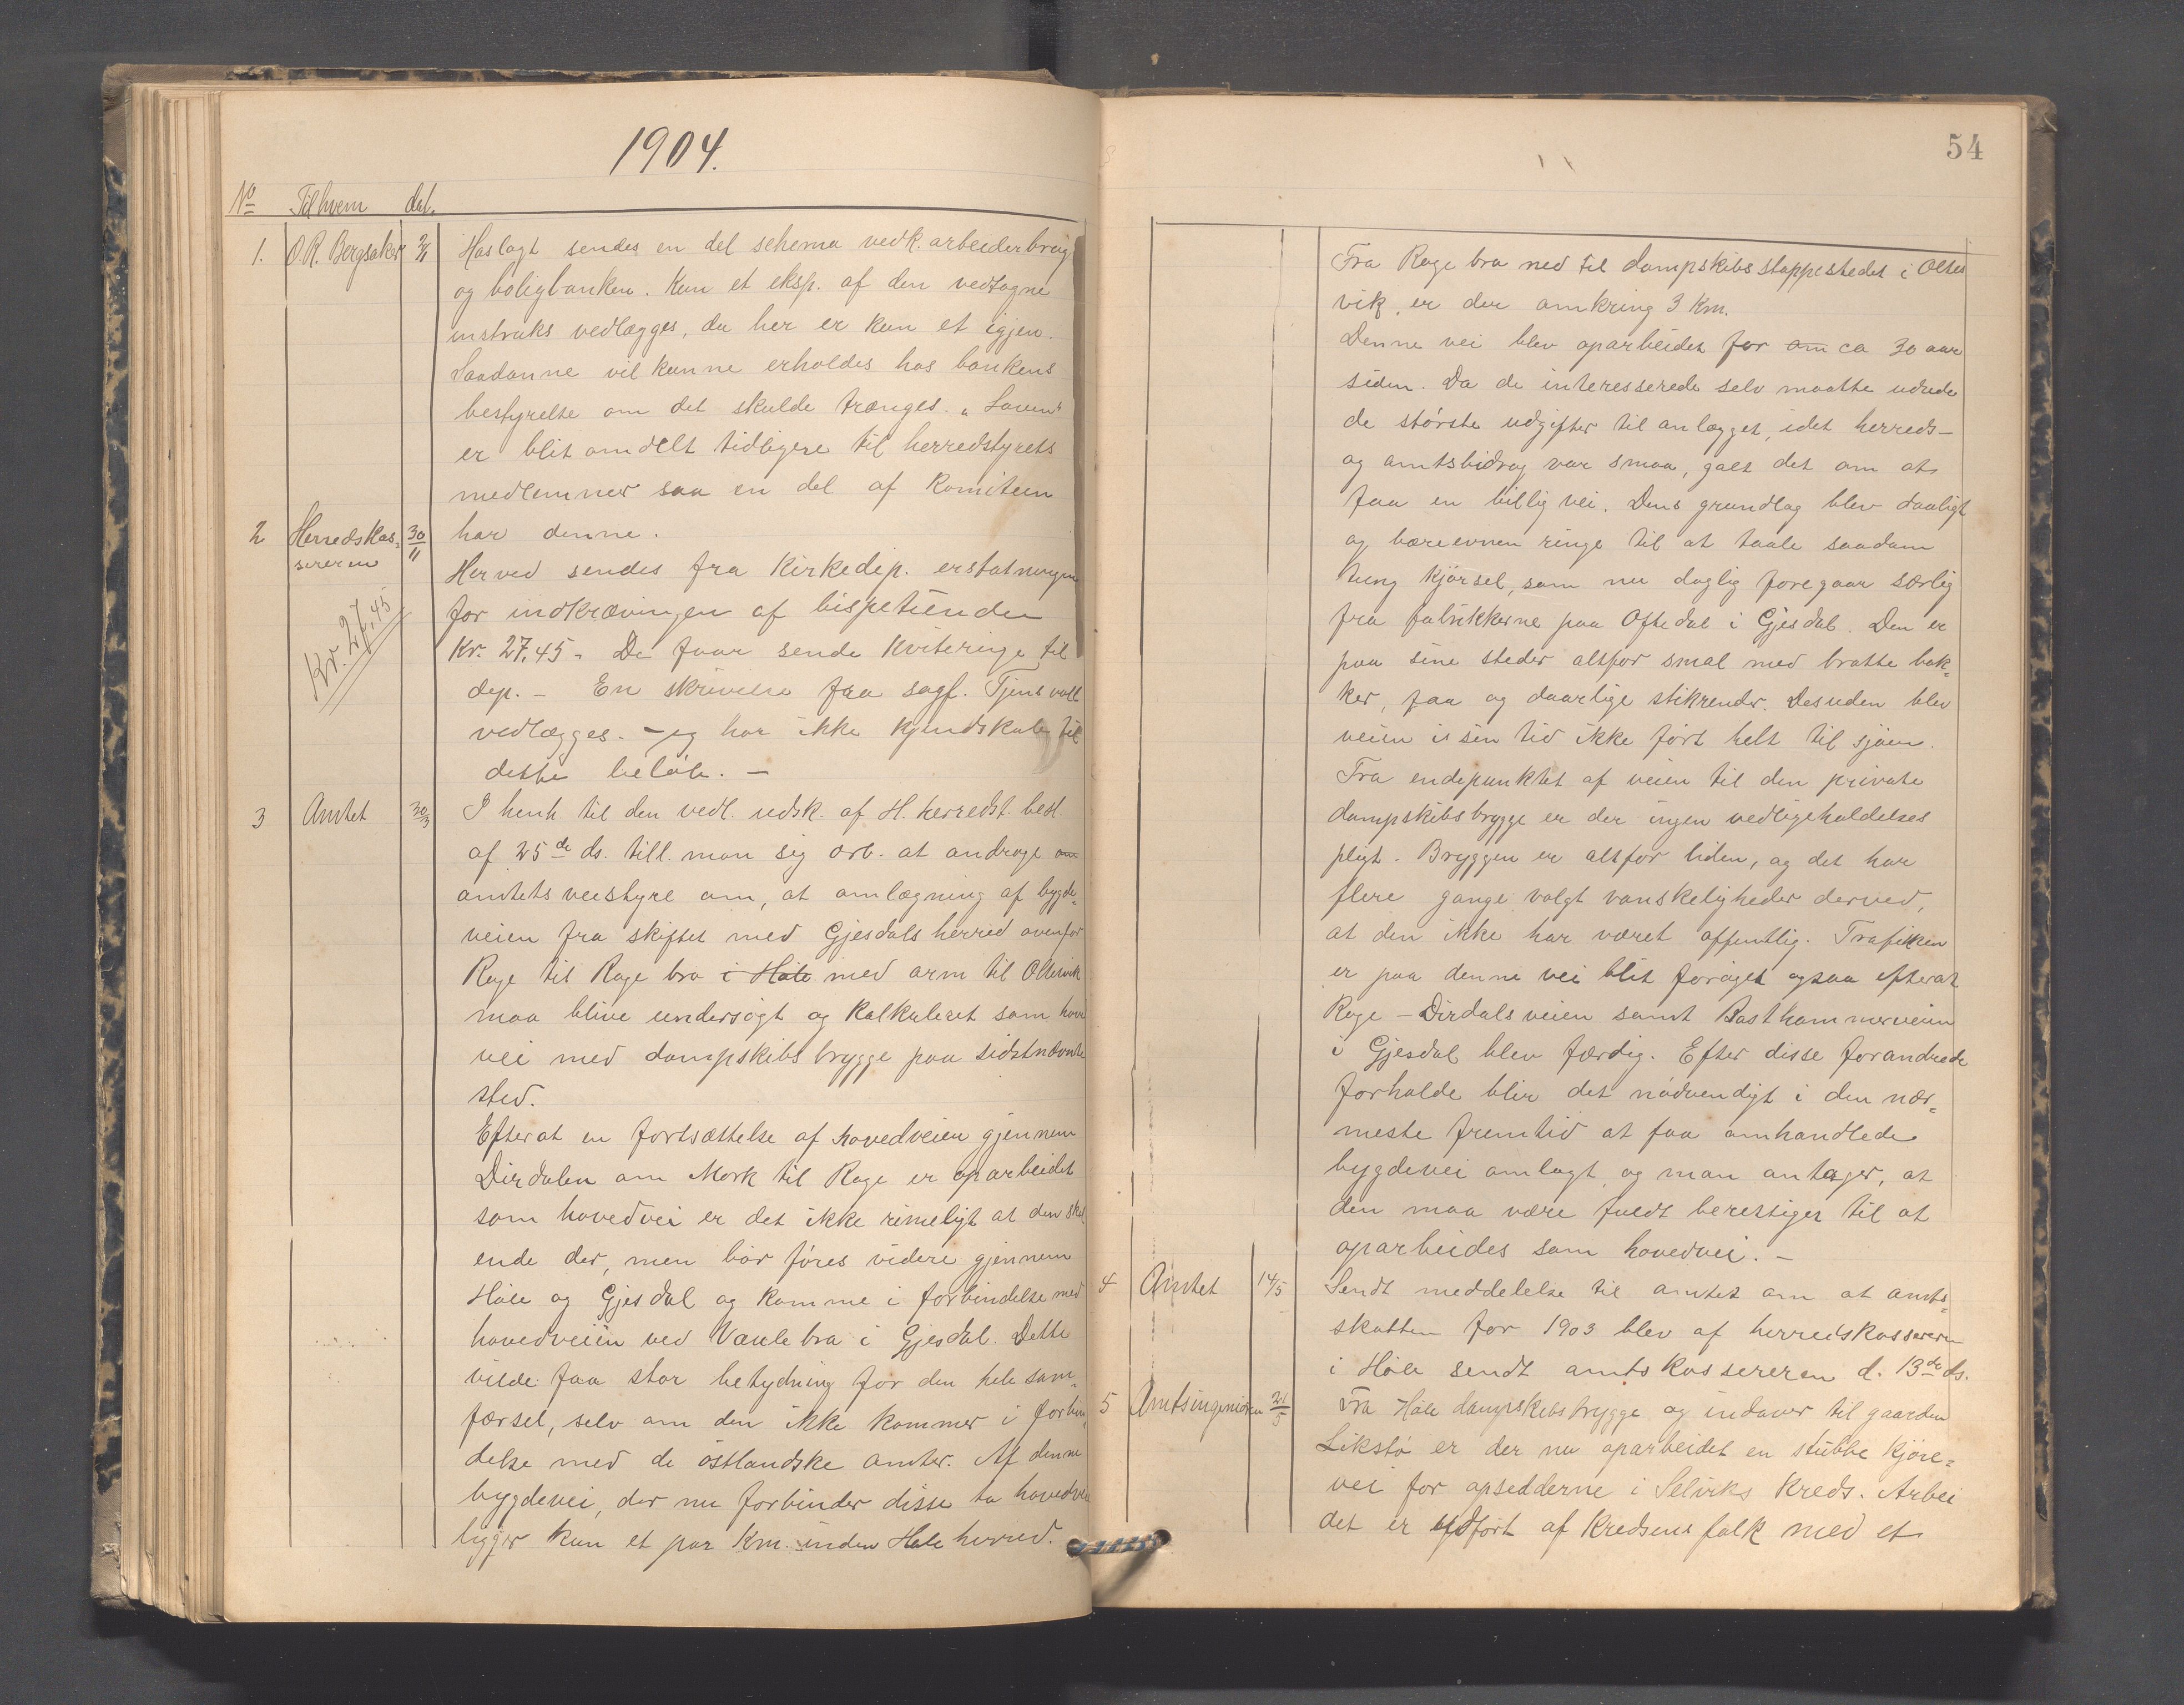 1904.
No Til hvem dat.
1. O. R. Bergsaker Hoslagt sendes en del schema vedk. arbeiderbrug
og boligbanken. Kun et eksp. af den vedtagne
instruks vedlægges, da her er kun et igjen.
Saadanne vil kunne erholdes hos bankens
bestyrelse om det skulde trænges. „Loven"
er blit omdelt tidligere til herredstyrets
medlemmer saa en del af komiteen
har denne.
2 Herredskas-
sereren 30/11
Herved sendes fra Kirkedep. erstatningen
for indkrævingen af bispetienden
Kr. 27,45
Kr. 27,45. De faar sende kvitering til
dep. – En skrivelse fra sagf. Tjensvoll
vedlægges. – jeg har ikke kjendskab til
dette beløb. –
3 Amtet 30/3 I henh. til den vedl. udsk. af H. herredst. besl.
af 25de ds. till. man sig ærb. at andrage om
amtets veistyre om, at omlægning af bygde-
veien fra skiftet med Gjesdals herred ovenfor
Rage til Rage bro i Høle med arm til Oltesvik
maa blive undersøgt og kalkuleret som hoved
vei med dampskibsbrygge paa sidstnævnte
sted.
Efterat en fortsættelse af hovedveien gjennem
Dirdalen om Mork til Rage er oparbeidet
som hovedvei er det ikke rimeligt at den skal
ende der, men bør føres videre gjennem
Høle og Gjesdal og komme i forbindelse med
hovedveien ved Vaule bro i Gjesdal. Dette
vilde faa stor betydning for den hele sam-
færsel, selv om den ikke kommer i forbin-
delse med de østlandske amter. Af denne
bygdevei, der nu forbinder disse to hovedveie
ligger kun et par Km. inden Høle herred.
54
Fra Rage bro ned til dampskibsstoppestedet i Oltes
vik, er der omkring 3 Km.
Denne vei blev oparbeidet for om ca 30 aar
siden. Da de interesserede selv maatte udrede
de største udgifter til anlægget, idet herreds-
og amtsbidrag var smaa, galt det om at
faa en billig vei. Dens grundlag blev daarligt
og bæreevnen ringe til at taale saadan
tung kjørsel, som nu daglig foregaar særlig
fra fabrikkerne paa Oftedal i Gjesdal. Den er
paa sine steder altfor smal med bratte bak-
ker, faa og daarlige stikrender. Desuden blev
veien i sin tid ikke ført helt til sjøen.
Fra endepunktet af veien til den private
dampskibsbrygge er der ingen vedligeholdelses
pligt. Bryggen er altfor liden, og det har
flere gange voldt vanskeligheder derved,
at den ikke har været offentlig. Trafikken
er paa denne vei blit forøget ogsaa efterat
Rage – Dirdalsveien samt Basthammerveien
i Gjesdal blev færdig. Efter disse forandrede
forholde blir det nødvendigt i den nær-
meste fremtid at faa omhandlede
bygdevei omlagt, og man antager, at
den maa være fuldt berettiget til at
oparbeides som hovedvei. –
4 Amtet 14/5 Sendt meddelelse til amtet om at amts-
skatten for 1903 blev af herredskassereren
i Høle sendt amtskassereren d. 13de ds.
5 Amtsingeniøren 21/5 Fra Høle dampskibsbrygge og indover til gaarden
Leikstø er der nu oparbeidet en stubbe kjøre-
vei for opsidderne i Selviks kreds. Arbei
det er udført af kredsens folk med et